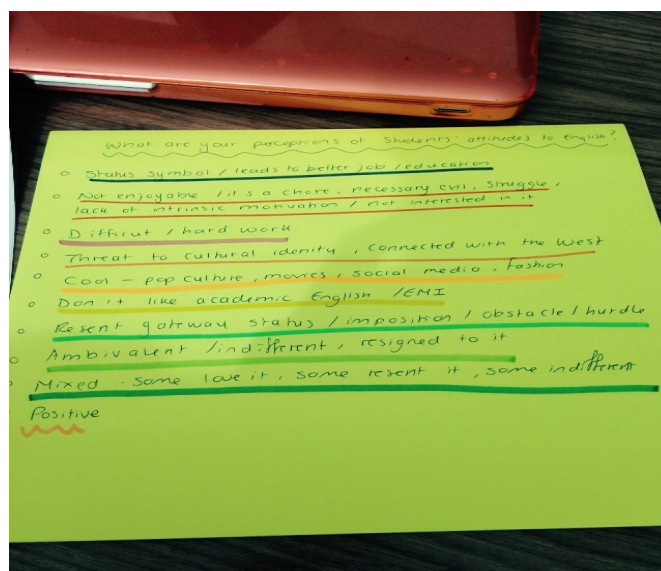 What are your perceptions of Students' attitudes to English?
Status symbol / leads to better job / education
Not enjoyable / it's a chore, necessary evil, struggle,
lack of intrinsic motivation / not interested in it
Difficut / hard work
Threat to cultural idenity, connected with the West
Cool - pop culture, movies, social media, fashion
Don't like academic English / EMI
Resent gateway status / imposition / obstacle / hurdle
Ambivalent / indifferent, resigned to it
Mixed - some love it, some resent it, some indifferent
Positive